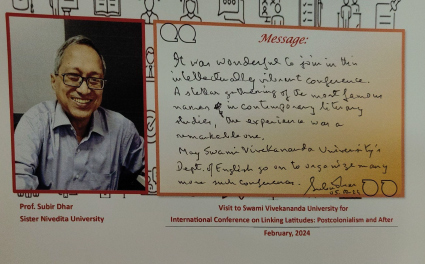 Message:
It was wonderful to join in this
intellectually vibrant conference.
A stellar gathering of the most famous
names in contemporary literary
studies, the experience was a
remarkable one.
May Swami Vivekananda University's
Dept. of English go on to organize many
more such conferences.
Subir Dhar
Prof. Subir Dhar
Sister Nivedita University
Visit to Swami Vivekananda University for
International Conference on Linking Latitudes: Postcolonialism and After
February, 2024